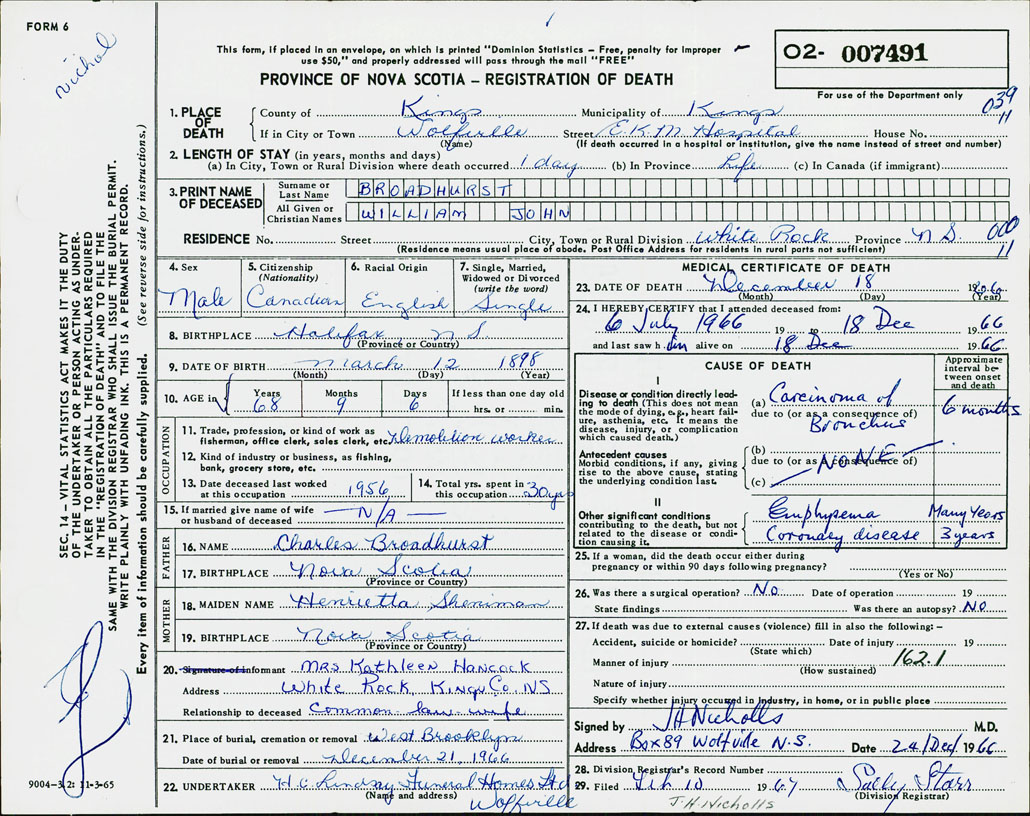 FORM 6
This form, if placed in an envelope, on which is printed "Dominion Statistics – Free, penalty for improper
use $50," and properly addressed will pass through the mail "FREE"
PROVINCE OF NOVA SCOTIA – REGISTRATION OF DEATH
O2- 007491
For use of the Department only
039
11
1. PLACE OF DEATH
County of Kings Municipality of Kings
If in City or Town Wolfville Street E.K.M. Hospital House No.
(Name) (If death occurred in a hospital or institution, give the name instead of street and number)
2. LENGTH OF STAY (in years, months and days)
(a) In City, Town or Rural Division where death occurred 1 day (b) In Province Life (c) In Canada (if immigrant)
3. PRINT NAME OF DECEASED
Surname or Last Name BROADHURST
All Given or Christian Names WILLIAM JOHN
RESIDENCE No. Street City, Town or Rural Division White Rock Province N.S. 000
(Residence means usual place of abode. Post Office Address for residents in rural parts not sufficient) 11
4. Sex
Male
5. Citizenship (Nationality)
Canadian
6. Racial Origin
English
7. Single, Married, Widowed or Divorced (write the word)
Single
8. BIRTHPLACE Halifax N S
(Province or Country)
9. DATE OF BIRTH March 12 1898
(Month) (Day) (Year)
10. AGE in Years Months Days If less than one day old
68 9 6 hrs. or min.
OCCUPATION
11. Trade, profession, or kind of work as
fisherman, office clerk, sales clerk, etc. Demolition worker
12. Kind of industry or business, as fishing,
bank, grocery store, etc.
13. Date deceased last worked
at this occupation 1956
14. Total yrs. spent in
this occupation 30 yrs
15. If married give name of wife
or husband of deceased — N/A —
FATHER
16. NAME Charles Broadhurst
17. BIRTHPLACE Nova Scotia
(Province or Country)
MOTHER
18. MAIDEN NAME Henrietta
19. BIRTHPLACE Nova Scotia
(Province or Country)
20. Signature of informant Mrs Kathleen Hancock
Address White Rock, Kings Co. NS
Relationship to deceased Common-law-wife
21. Place of burial, cremation or removal West Brooklyn
Date of burial or removal December 21, 1966
22. UNDERTAKER H.C. Lindsay Funeral Homes Ltd
(Name and address) Wolfville
MEDICAL CERTIFICATE OF DEATH
23. DATE OF DEATH December 18 1966
(Month) (Day) (Year)
24. I HEREBY CERTIFY that I attended deceased from:
6 July 1966 19 to 18 Dec 1966
and last saw him alive on 18 Dec 1966
CAUSE OF DEATH
Approximate interval between onset and death
I
Disease or condition directly leading to death (This does not mean the mode of dying, e.g., heart failure, asthenia, etc. It means the disease, injury, or complication which caused death.)
(a) Carcinoma of
due to (or as a consequence of)
Bronchus
6 months
Antecedent causes
Morbid conditions, if any, giving rise to the above cause, stating the underlying condition last.
(b)
due to (or as a consequence of)
— NONE —
(c)
II
Other significant conditions
contributing to the death, but not related to the disease or condition causing it.
Emphysema Many Years
Coronary disease 3 years
25. If a woman, did the death occur either during
pregnancy or within 90 days following pregnancy?
(Yes or No)
26. Was there a surgical operation? No Date of operation 19
State findings Was there an autopsy? No
27. If death was due to external causes (violence) fill in also the following: –
Accident, suicide or homicide? Date of injury 19
(State which)
Manner of injury 162.1
(How sustained)
Nature of injury
Specify whether injury occurred in Industry, in home, or in public place
Signed by JHNicholls M.D.
Address Box 89 Wolfville N.S. Date 24/Dec/1966
28. Division Registrar's Record Number
29. Filed Feb 10 1967 Sally Starr
(Division Registrar)
J.H. Nicholls
nichol
SEC. 14 – VITAL STATISTICS ACT MAKES IT THE DUTY
OF THE UNDERTAKER OR PERSON ACTING AS UNDER-
TAKER TO OBTAIN ALL THE PARTICULARS REQUIRED
IN THE "REGISTRATION OF DEATH" AND TO FILE THE
SAME WITH THE DIVISION REGISTRAR WHO SHALL ISSUE THE BURIAL PERMIT.
WRITE PLAINLY WITH UNFADING INK. THIS IS A PERMANENT RECORD.
Every item of information should be carefully supplied. (See reverse side for instructions.)
9004-3.2: 11-3-65